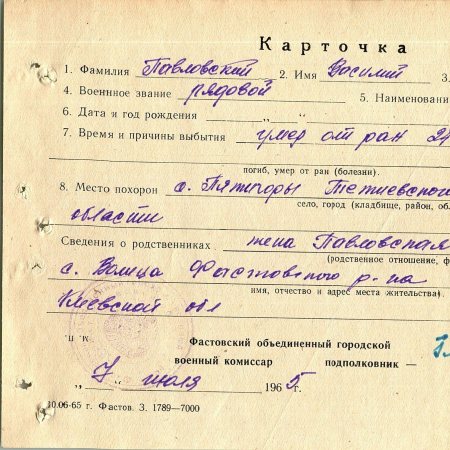 Карточка
1. Фамилия Павловский 2. Имя Василий 3.
4. Военное звание рядовой 5. Наименовани
6. Дата и год рождения „ “
7. Время и причины выбытия умер от ран 24
погиб, умер от ран (болезни).
8. Место похорон с. Пятигоры Тетиевского
село, город (кладбище, район, обл
области
Сведения о родственниках жена Павловская
(родственное отношение, ф
с. Волица Фастовского р-на
имя, отчество и адрес места жительства).
Киевской обл
М. П. Фастовский объединенный городской
военный комиссар подполковник —
„ 7 “ июля 1965 г.
10.06-65 г. Фастов. З. 1789—7000